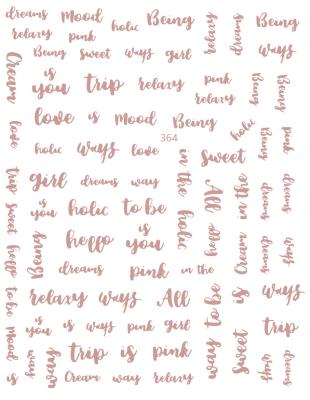 dreams Mood holic Being relaxy dreams Being
relaxy pink
Being Sweet ways girl ways
Cream is you trip relaxy pink Being Being
relaxy
love is Mood Being holic
364
love holic ways love in the holic Sweet Being pink
trip girl dreams way All Cream in the dreams dreams
Sweet is you holic to be
hello Being hello is you hello dreams ways
dreams pink in the
to be relaxy ways All way to be is ways
Mood is you is ways pink girl Sweet trip
is ways way trip is pink ways dreams
Cream way relaxy